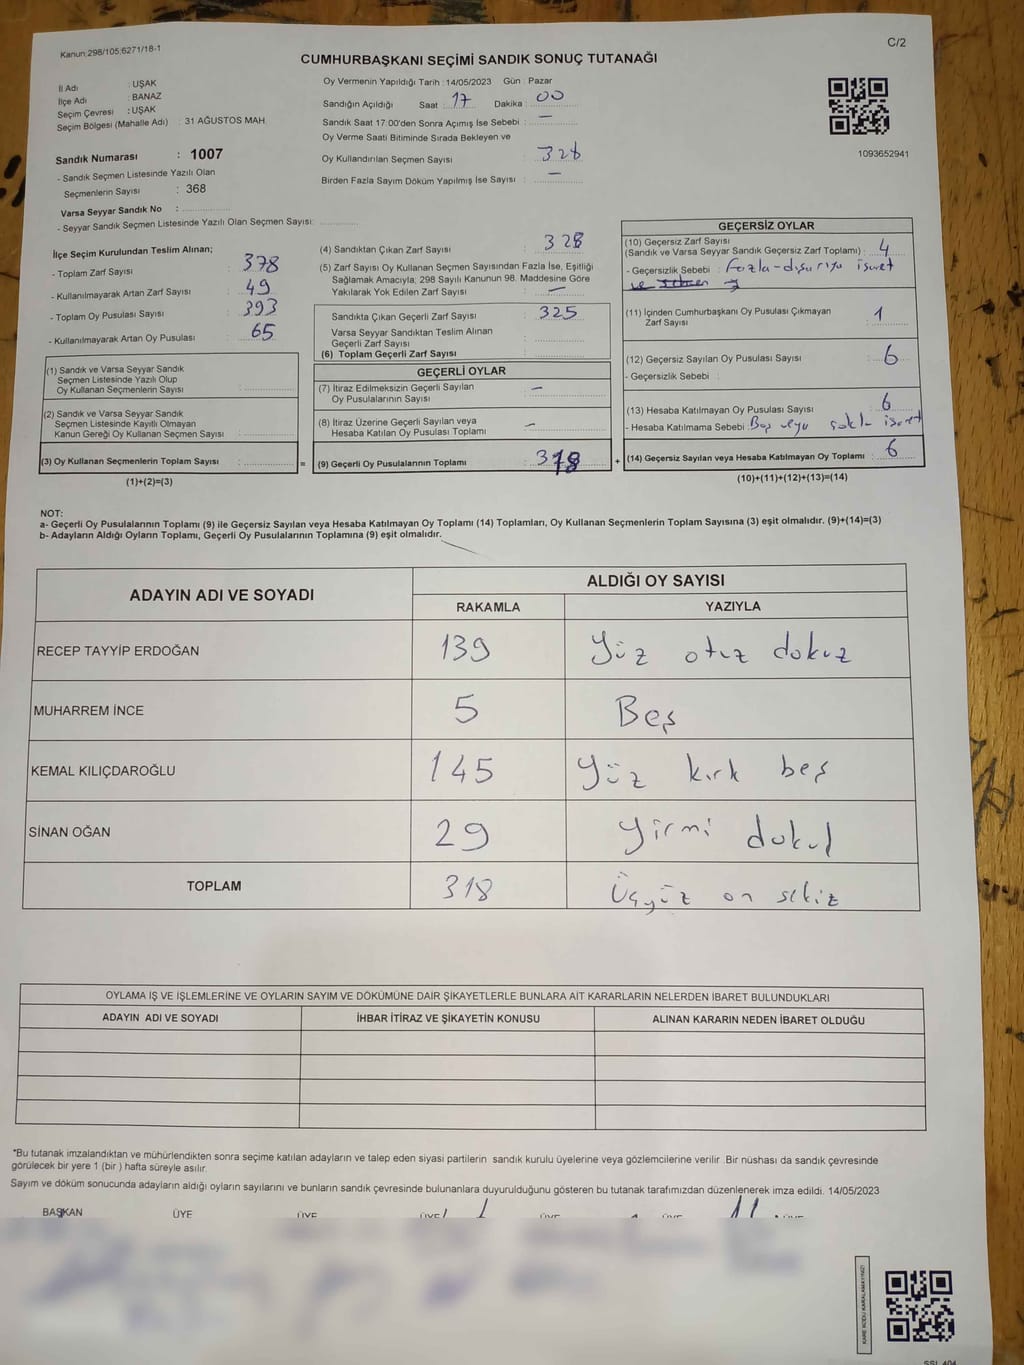 Kanun:298/105;6271/18-1
C/2
CUMHURBAŞKANI SEÇİMİ SANDIK SONUÇ TUTANAĞI
İl Adı : UŞAK
İlçe Adı : BANAZ
Seçim Çevresi : UŞAK
Seçim Bölgesi (Mahalle Adı) : 31 AĞUSTOS MAH.
Sandık Numarası : 1007
- Sandık Seçmen Listesinde Yazılı Olan
Seçmenlerin Sayısı : 368
Varsa Seyyar Sandık No :
- Seyyar Sandık Seçmen Listesinde Yazılı Olan Seçmen Sayısı:
Oy Vermenin Yapıldığı Tarih : 14/05/2023 Gün : Pazar
Sandığın Açıldığı Saat : 17 Dakika : 00
Sandık Saat 17:00'den Sonra Açımış İse Sebebi : —
Oy Verme Saati Bitiminde Sırada Bekleyen ve
Oy Kullandırılan Seçmen Sayısı : 328
Birden Fazla Sayım Döküm Yapılmış İse Sayısı : —
1093652941
İlçe Seçim Kurulundan Teslim Alınan;
- Toplam Zarf Sayısı : 378
- Kullanılmayarak Artan Zarf Sayısı : 49
- Toplam Oy Pusulası Sayısı : 393
- Kullanılmayarak Artan Oy Pusulası : 65
(1) Sandık ve Varsa Seyyar Sandık
Seçmen Listesinde Yazılı Olup
Oy Kullanan Seçmenlerin Sayısı :
(2) Sandık ve Varsa Seyyar Sandık
Seçmen Listesinde Kayıtlı Olmayan
Kanun Gereği Oy Kullanan Seçmen Sayısı :
(3) Oy Kullanan Seçmenlerin Toplam Sayısı : =
(1)+(2)=(3)
(4) Sandıktan Çıkan Zarf Sayısı : 328
(5) Zarf Sayısı Oy Kullanan Seçmen Sayısından Fazla İse, Eşitliği
Sağlamak Amacıyla; 298 Sayılı Kanunun 98. Maddesine Göre
Yakılarak Yok Edilen Zarf Sayısı : —
Sandıkta Çıkan Geçerli Zarf Sayısı : 325
Varsa Seyyar Sandıktan Teslim Alınan
Geçerli Zarf Sayısı :
(6) Toplam Geçerli Zarf Sayısı :
GEÇERLİ OYLAR
(7) İtiraz Edilmeksizin Geçerli Sayılan : —
Oy Pusulalarının Sayısı
(8) İtiraz Üzerine Geçerli Sayılan veya : —
Hesaba Katılan Oy Pusulası Toplamı
(9) Geçerli Oy Pusulalarının Toplamı : 318 +
GEÇERSİZ OYLAR
(10) Geçersiz Zarf Sayısı
(Sandık ve Varsa Seyyar Sandık Geçersiz Zarf Toplamı) : 4
- Geçersizlik Sebebi : fazla-dışarıya işaret
(11) İçinden Cumhurbaşkanı Oy Pusulası Çıkmayan
Zarf Sayısı : 1
(12) Geçersiz Sayılan Oy Pusulası Sayısı : 6
- Geçersizlik Sebebi :
(13) Hesaba Katılmayan Oy Pusulası Sayısı : 6
- Hesaba Katılmama Sebebi : Boş veya işaret
(14) Geçersiz Sayılan veya Hesaba Katılmayan Oy Toplamı : 6
(10)+(11)+(12)+(13)=(14)
NOT:
a- Geçerli Oy Pusulalarının Toplamı (9) ile Geçersiz Sayılan veya Hesaba Katılmayan Oy Toplamı (14) Toplamları, Oy Kullanan Seçmenlerin Toplam Sayısına (3) eşit olmalıdır. (9)+(14)=(3)
b- Adayların Aldığı Oyların Toplamı, Geçerli Oy Pusulalarının Toplamına (9) eşit olmalıdır.
ADAYIN ADI VE SOYADI
ALDIĞI OY SAYISI
RAKAMLA YAZIYLA
RECEP TAYYİP ERDOĞAN 139 Yüz otuz dokuz
MUHARREM İNCE 5 Beş
KEMAL KILIÇDAROĞLU 145 Yüz kırk beş
SİNAN OĞAN 29 Yirmi dokuz
TOPLAM 318 Üçyüz on sekiz
OYLAMA İŞ VE İŞLEMLERİNE VE OYLARIN SAYIM VE DÖKÜMÜNE DAİR ŞİKAYETLERLE BUNLARA AİT KARARLARIN NELERDEN İBARET BULUNDUKLARI
ADAYIN ADI VE SOYADI İHBAR İTİRAZ VE ŞİKAYETİN KONUSU ALINAN KARARIN NEDEN İBARET OLDUĞU
*Bu tutanak imzalandıktan ve mühürlendikten sonra seçime katılan adayların ve talep eden siyasi partilerin sandık kurulu üyelerine veya gözlemcilerine verilir .Bir nüshası da sandık çevresinde
görülecek bir yere 1 (bir ) hafta süreyle asılır.
Sayım ve döküm sonucunda adayların aldığı oyların sayılarını ve bunların sandık çevresinde bulunanlara duyurulduğunu gösteren bu tutanak tarafımızdan düzenlenerek imza edildi. 14/05/2023
BAŞKAN ÜYE ÜYE ÜYE ÜYE ÜYE ÜYE
KARE KODU KARALAMAYINIZ!